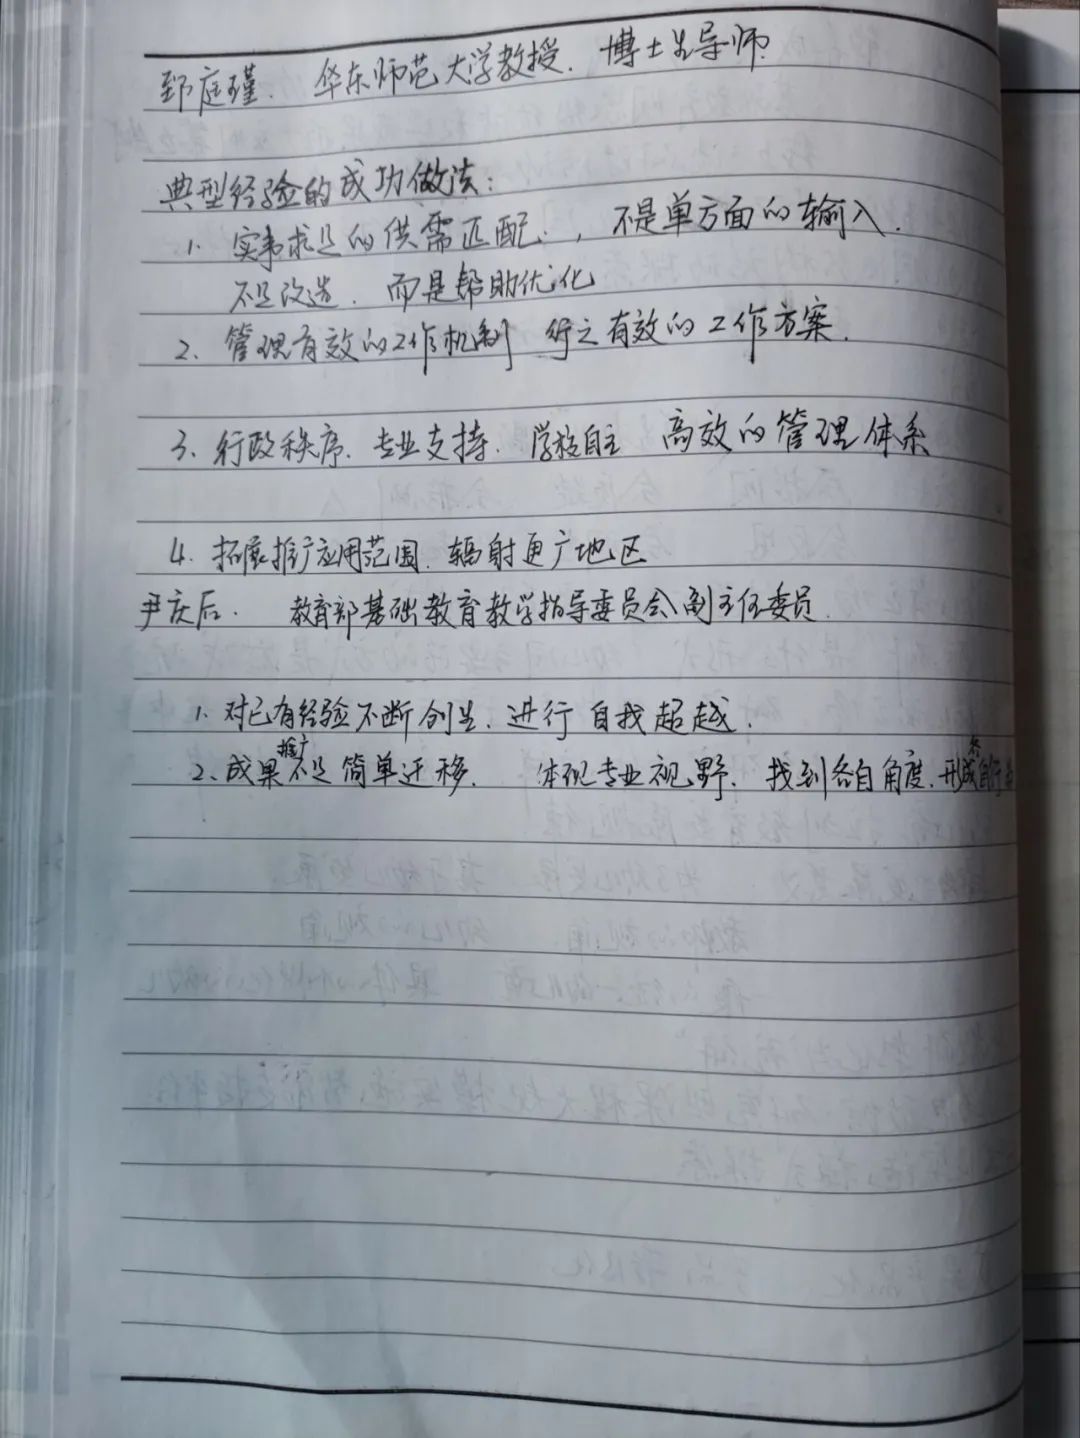 郅庭瑾. 华东师范大学教授. 博士生导师.
典型经验的成功做法:
1. 实事求是的供需匹配., 不是单方面的输入.
不是改造. 而是帮助优化
2、管理有效的工作机制 行之有效的工作方案.
3. 行政秩序. 专业支持. 学校自主 高效的管理体系
4. 拓展推广应用范围. 辐射更广地区
尹庆后. 教育部基础教育教学指导委员会副主任委员.
1. 对已有经验不断创生. 进行自我超越.
2、成果推广不是简单迁移. 体现专业视野. 找到各自角度. 形成各自